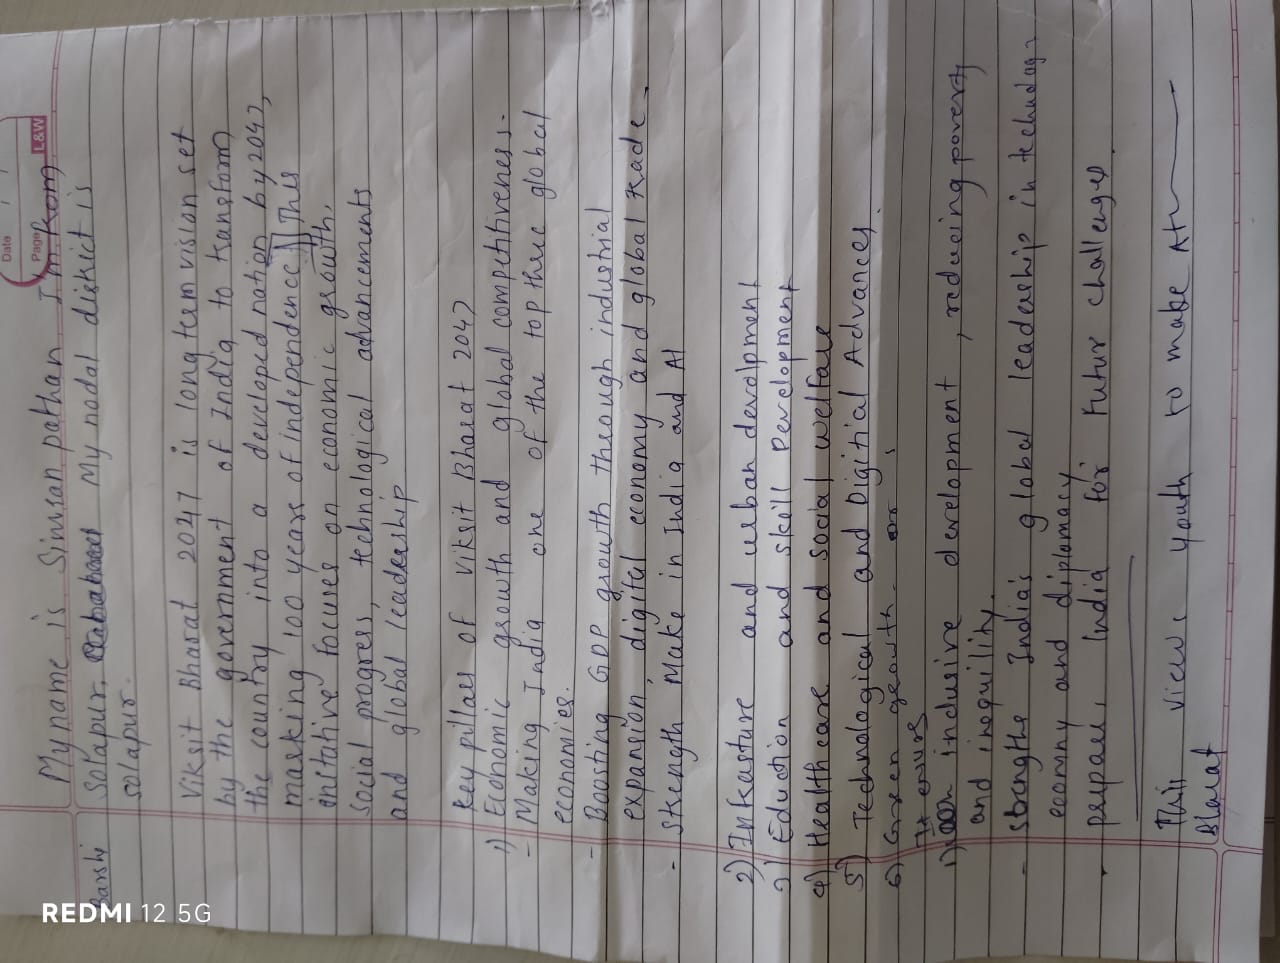 Date / /
Page L&W
REDMI 12 5G
My name is Simran pathan I'm from
Barshi Solapur. My nodal district is
solapur.
Viksit Bharat 2047 is long term vision set
by the government of India to transform
the country into a developed nation by 2047,
marking 100 years of independence] This
initative focuses on economic growth,
social progress, technological advancements
and global leadership
key pillars of viksit Bharat 2047
1) Economic growth and global competitiveness.
- Making India one of the top three global
economies.
- Boosting GDP growth through industrial
expansion, digital economy and global trade.
- Strength Make in India and AI
2) Infrasture and urban devolpment
3) Eduction and skill Development
4) Health care and social welfare
5) Technological and Digitial Advances.
6) Green growth. or
It ensures
1) inclusive development, reducing poverty
and inequility.
- strengthe India's global leadership in technology
ecomny and diplomacy
- prepare India for futur challenges.
This views youth to make
Bharat